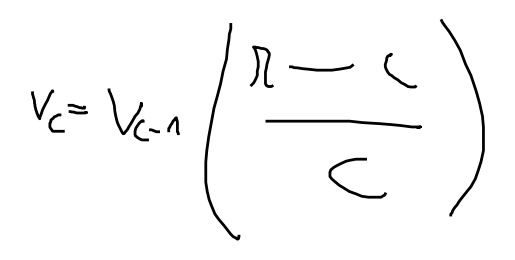 V_c = V_{c-1} ( \frac{n - c}{c} )